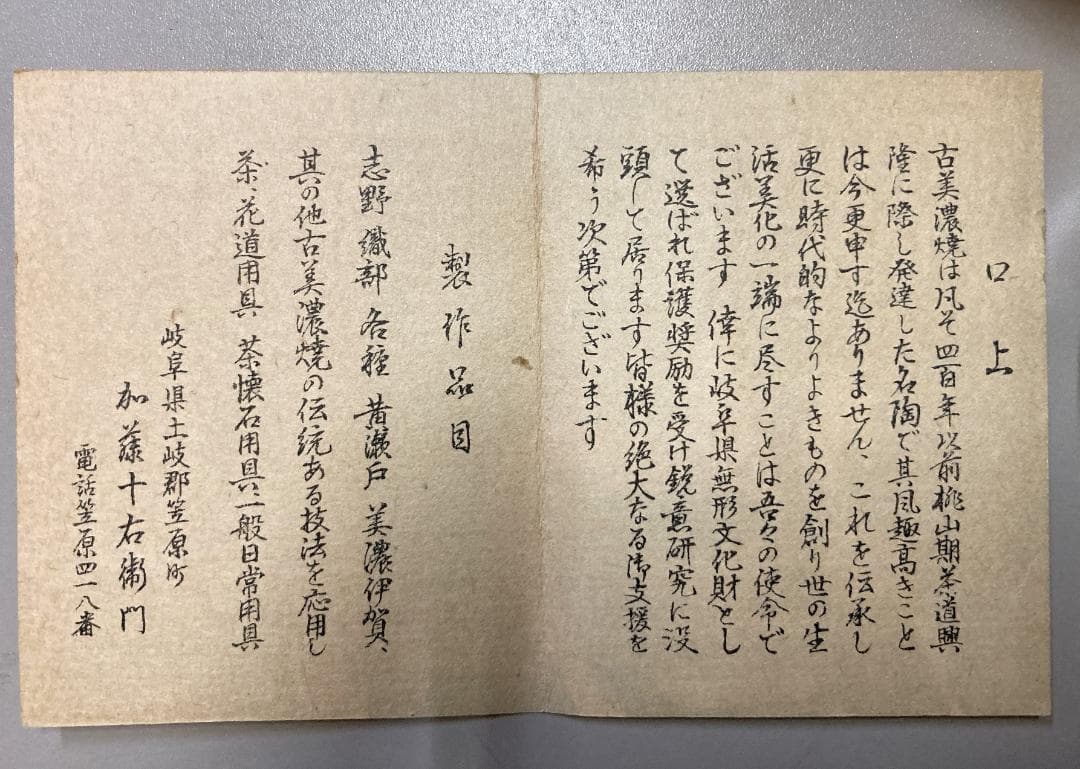 口上
古美濃焼は凡そ四百年以前桃山期茶道興
隆に際し発達した名陶で其風趣高きこと
は今更申す迄ありません、これを伝承し
更に時代的なよりよきものを創り世の生
活美化の一端に尽すことは吾々の使命で
ございます 倖に岐阜県無形文化財とし
て選ばれ保護奨励を受け鋭意研究に没
頭して居ります皆様の絶大なる御支援を
希う次第でございます
製作品目
志野 織部 各種 黄瀬戸 美濃伊賀、
其の他古美濃焼の伝統ある技法を応用し
茶、花道用具 茶懐石用具、一般日常用具
岐阜県土岐郡笠原町
加藤十右衛門
電話笠原四一八番